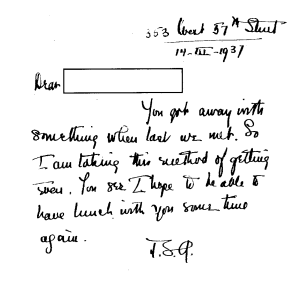 353 West 57th Street
14-III-1937
Dear
You got away with
something when last we met. So
I am taking this method of getting
even. You see I hope to be able to
have lunch with you some time
again.
J.S.G.